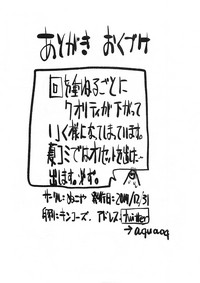 あとがき おくづけ
回を重ねるごとに
クオリティが下がって
いく様になってしまっています。
夏コミではオフセットを出す…
出します。必ず。
サークル:ぬこや 発行日:2011/12/31
印刷:キンコーズ. アドレス:Twitter
→aquaoq